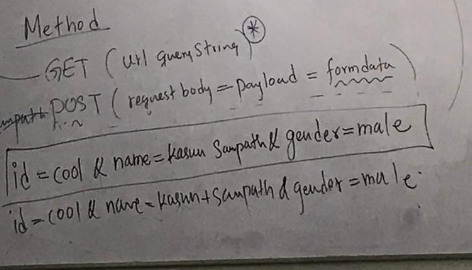 Method
GET (url queryString) *
POST (request body = payload = formdata)
id = cool & name = kasun Sampath & gender = male
id = cool & name = kasun+sampath & gender = male